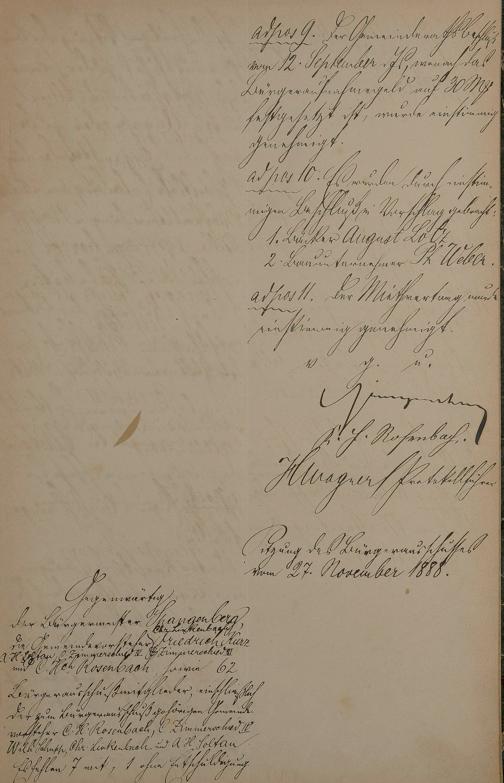 ad pos 9. Der Gemeinderathsbeschluß
vom 12. September cr., wonach das
Bürgeraufnahmegeld auf 30 Mk
festgesetzt ist, wurde einstimmig
genehmigt.
ad pos 10. Es wurden durch einstim-
migen Beschluß in Vorschlag gebracht:
1. Bäcker August Lotz
2. Bauunternehmer Ph Weber.
ad pos 11. Der Miethvertrag wurde
einstimmig genehmigt.
v. g. u.
C. H. Rosenbach.
HWagner Protokollführer
Sitzung des Bürgerausschusses
vom 27. November 1888.
Gegenwärtig
Der Bürgermeister Spangenberg,
die Gemeindevorsteher Friedrich Kurz
und C. Hch Rosenbach sowie 62
Bürgerausschußmitglieder, einschließlich
der zum Bürgerausschuß gehörigen Gemeinde
vorsteher C. H. Rosenbach, C Zimmerschied II
Chr. Linkenbach und A H. Soltan
Es fehlen 7 mit, 1 ohne Entschuldigung